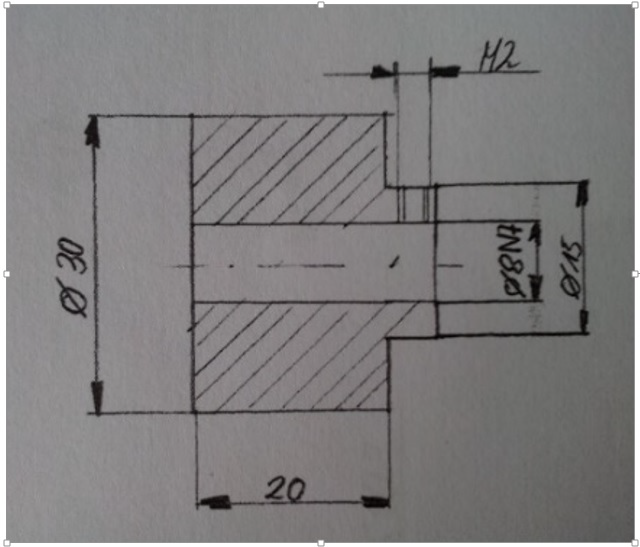 M2
Ø 30
Ø8N7
Ø15
20